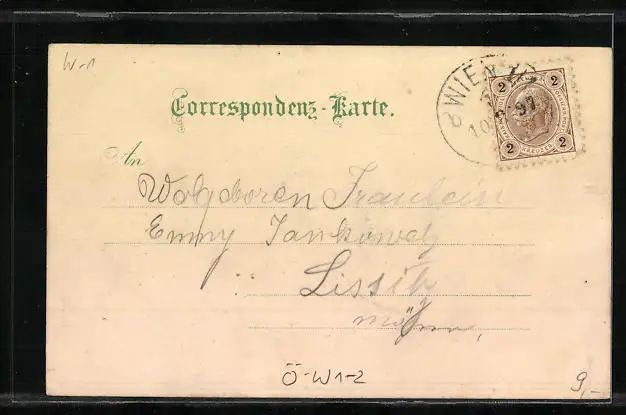 W-1
WIEN
97
2 2
KREUZER
2 2
Correspondenz-Karte.
An
Wolgeboren Fraulein
Emmy Jankowetz
Lissitz
Mähren,
Ö-W1-2
9,-